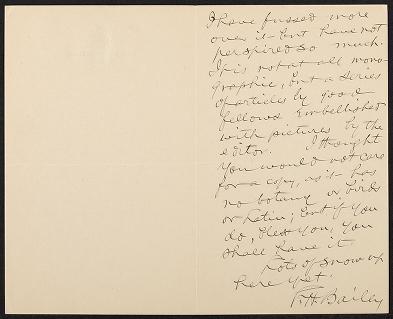 I have fussed more
over it - but have not
perspired so much.
It is not at all mono-
graphic, but a series
of articles by good
fellows embellished
with pictures by the
editor. I thought
you would not care
for a copy, as it has
no botany or birds
or Latin; but if you
do, bless you, you
shall have it.
Lots of snow up
here yet.
L. H. Bailey